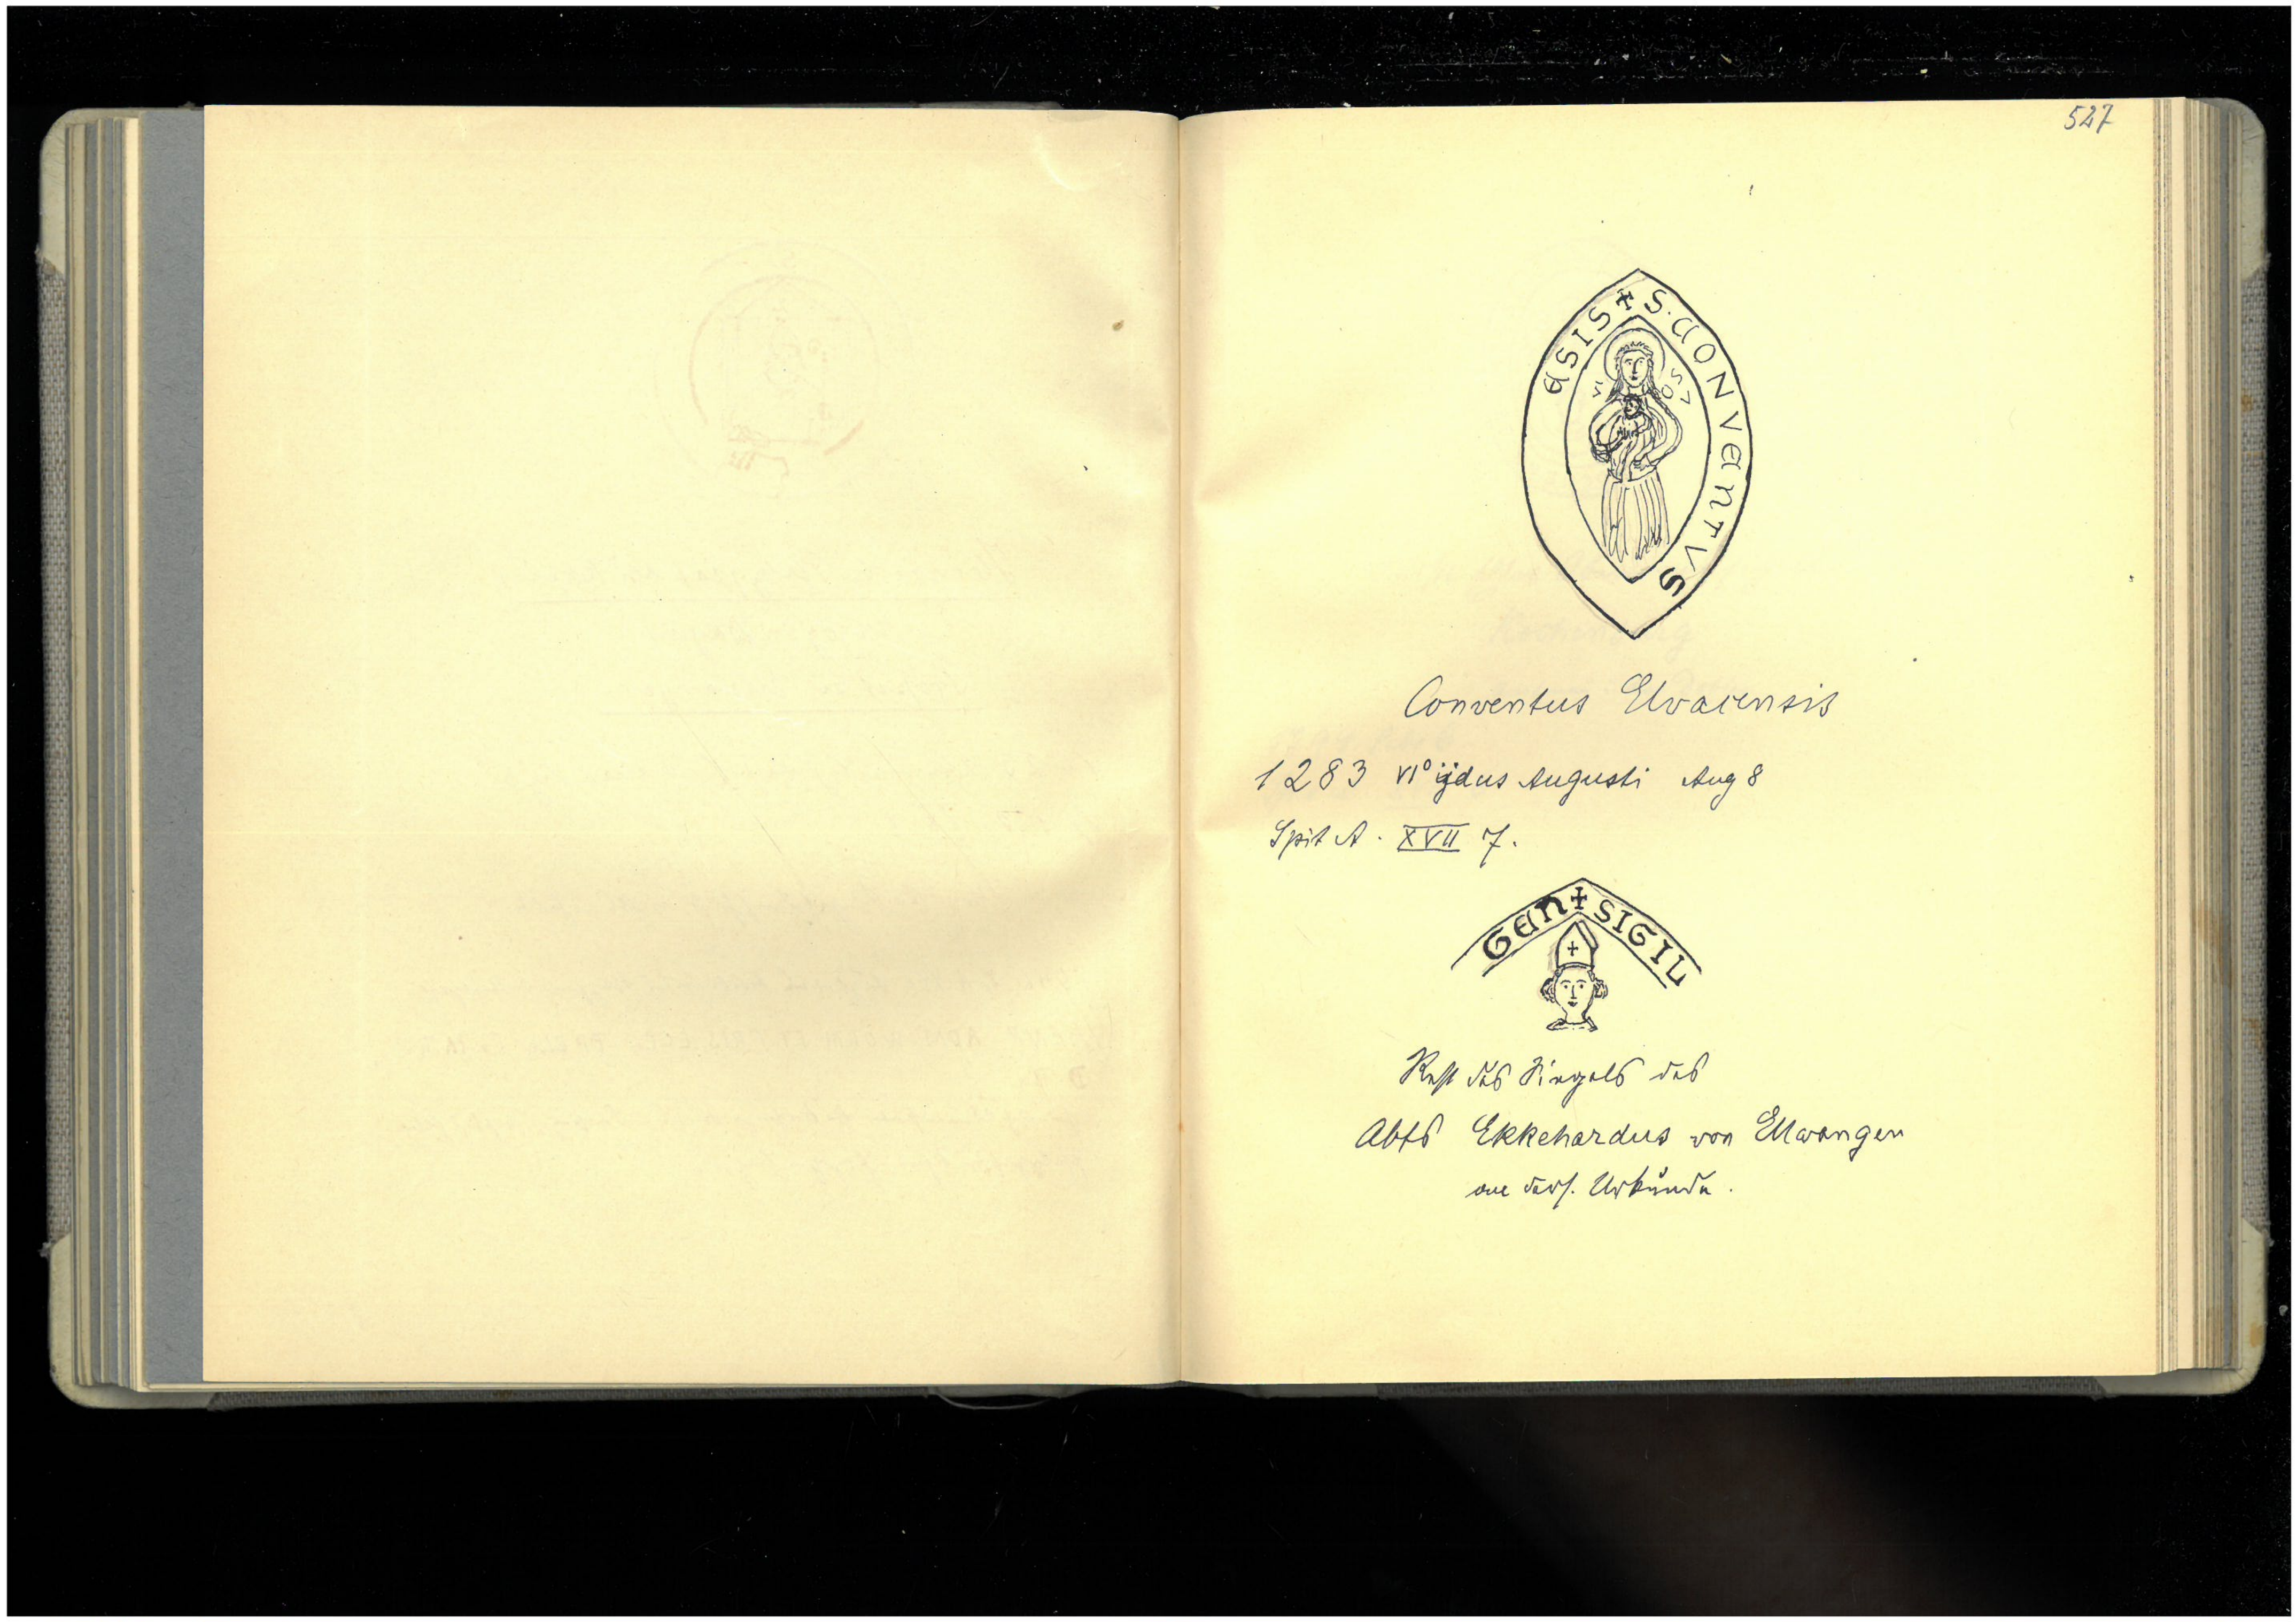 527
ESIS + S. CONVENTVS
Conventus Elvacensis
1283 VI° ijdus Augusti Aug 8
Spit A. XVII 7.
GEN + SIGIL
Rest des Siegels des
Abts Ekkehardus von Ellwangen
an ders. Urkunde.